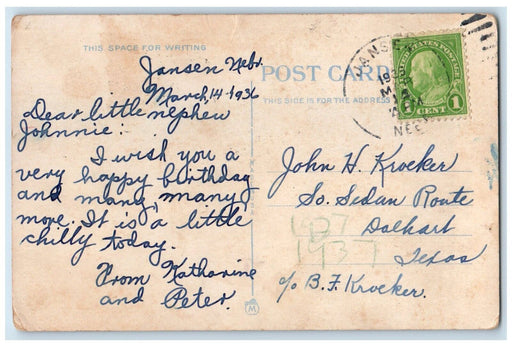 THIS SPACE FOR WRITING
Jansen Nebr.
March, 14-1936
Dear little nephew
Johnnie:
I wish you a
very happy birthday
and many, many
more. It is a little
chilly today.
From Katharine
and Peter.
M
POST CARD
THIS SIDE IS FOR THE ADDRESS
JANSEN
1936
NEBR
UNITED STATES POSTAGE
1 CENT 1
John H. Kroeker
So. Sedan Route
Dalhart
Texas
c/o B.F. Kroeker.
1937